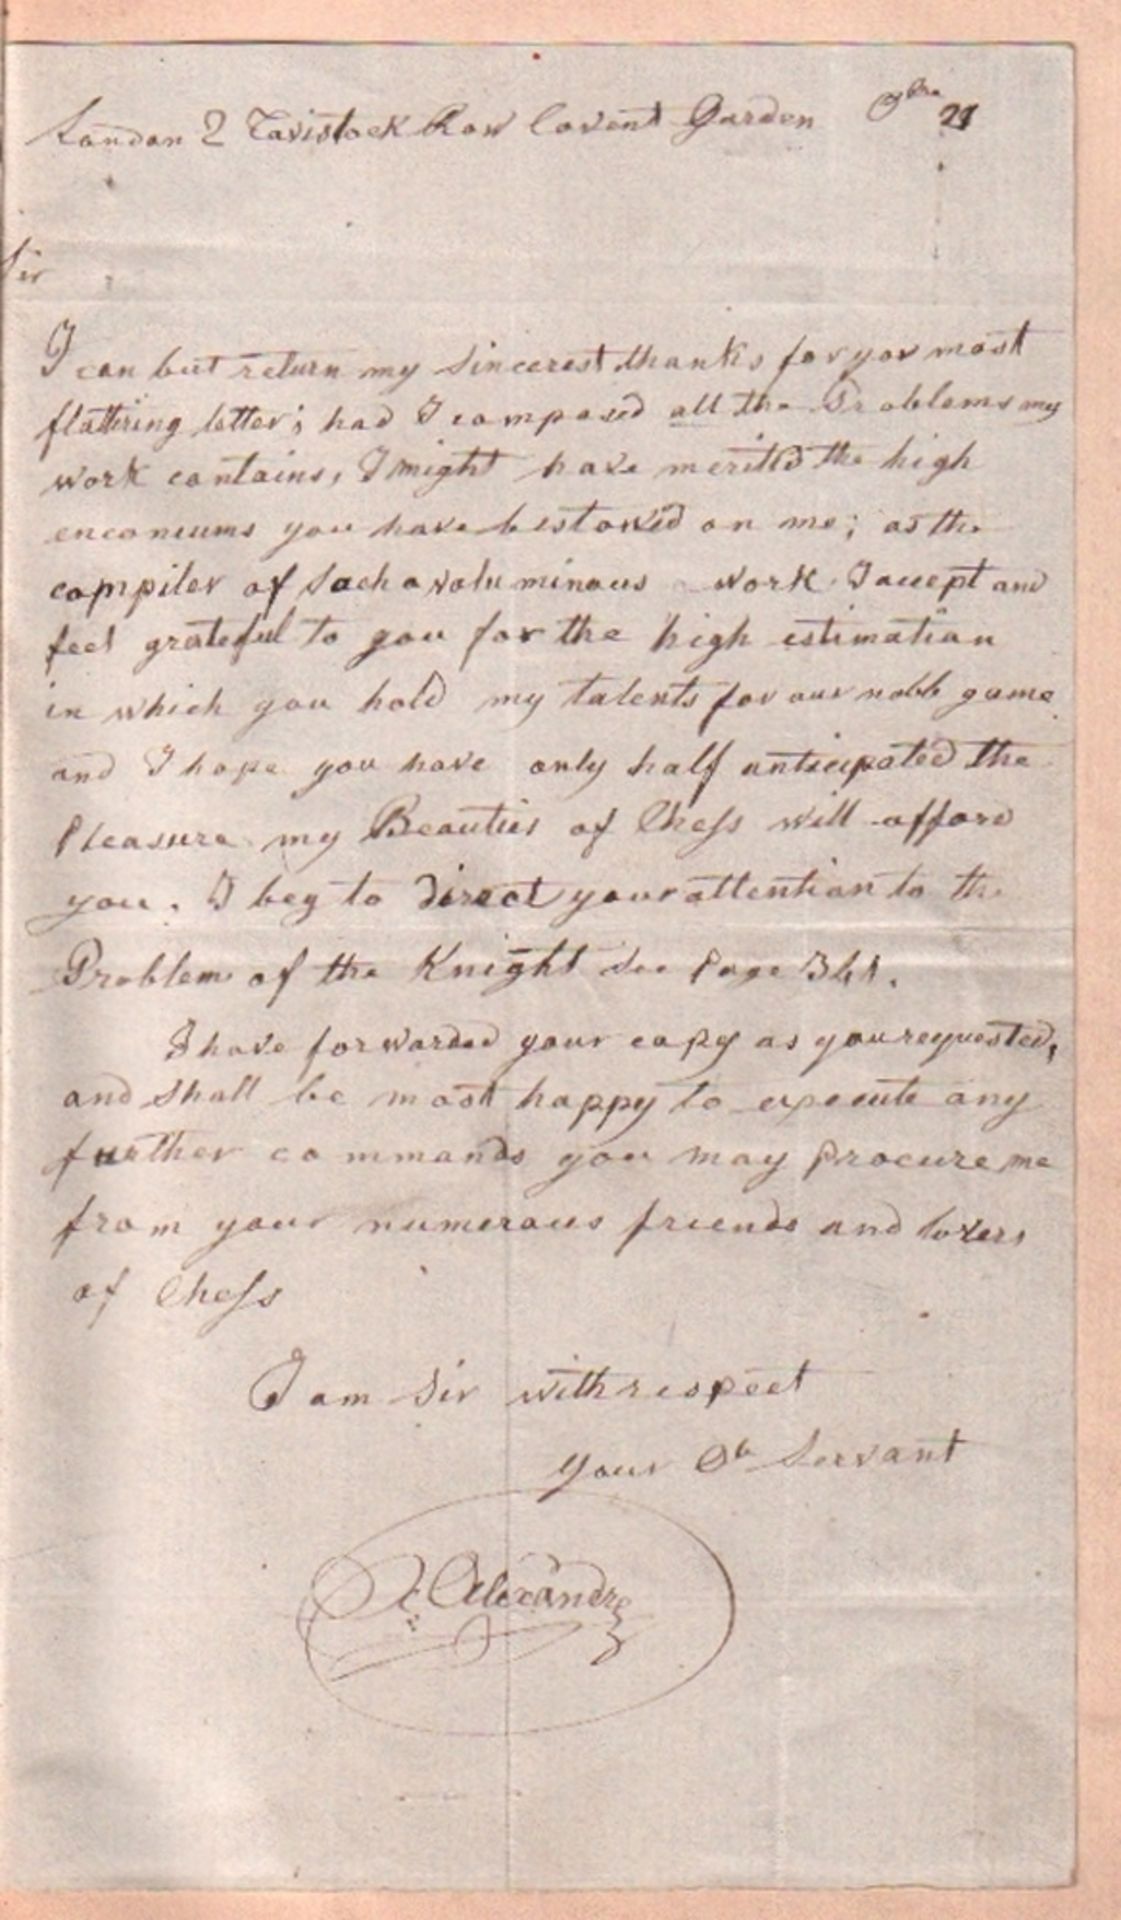 London 2 Tavistock Row Covent Garden 9bre 21
Sir
I can but return my Sincerest thanks for yor most
flattiring letter; had I composed all the Problems my
work contains, I might have merited the high
enconiums you have bestowed on me; as the
compiler of Such a voluminous work I accept and
feel grateful to you for the high estimation
in which you hold my talents for our noble game
and I hope you have only half anticipated the
Pleasure my Beauties of Chess will afford
you. I beg to direct your attention to the
Problem of the Knight See Page 341.
I have forwarded your copy as you requested,
and Shall be most happy to execute any
further commands you may procure me
from your numerous friends and lovers
of Chess
I am Sir with respect
Your Ob Servant
A. Alexandre